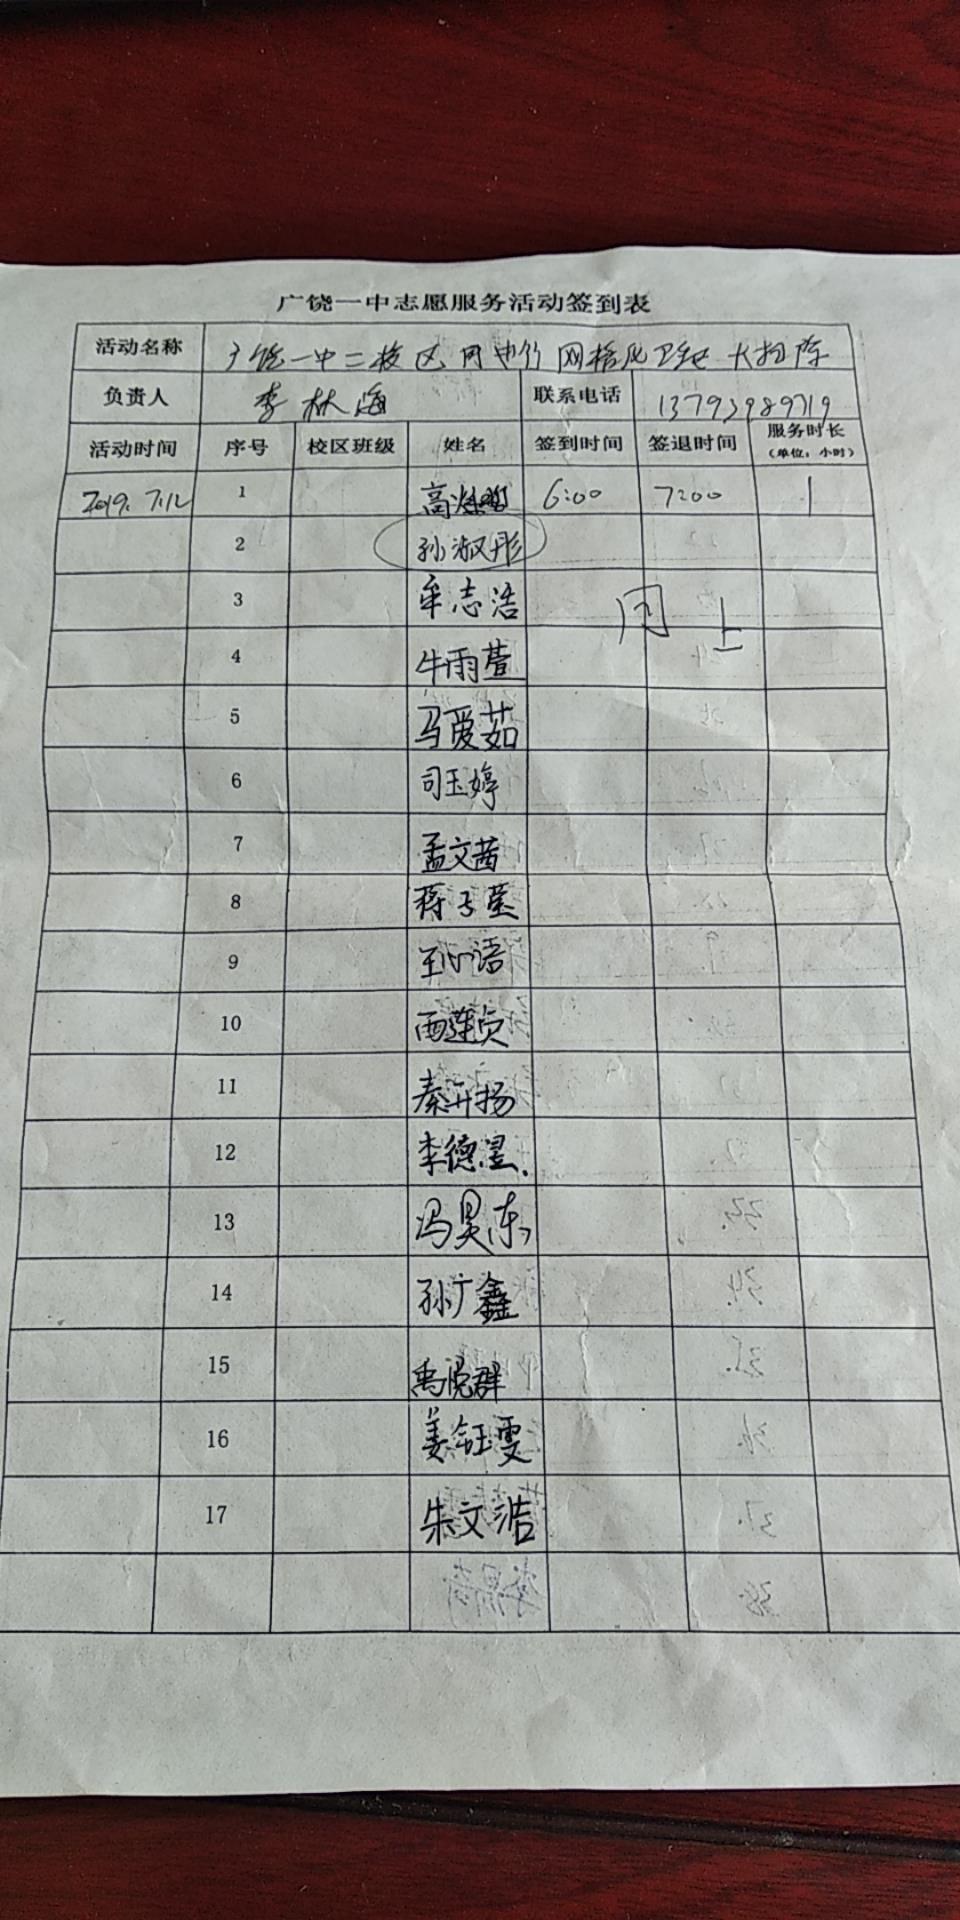 广饶一中志愿服务活动签到表
活动名称 广饶一中二校区 网格化卫生区 大扫除
负责人 李林海 联系电话 13793989719
活动时间 序号 校区班级 姓名 签到时间 签退时间 服务时长（单位：小时）
2019.7.12 1 高 6:00 7:00 1
2 孙淑彤
3 牟志浩 同上
4 牛雨萱
5 马爱茹
6 司玉婷
7 孟文茜
8 蒋子莹
9 王心语
10 西莲贞
11 秦开扬
12 李德昱
13 冯昊东
14 孙广鑫
15 禹悦群
16 姜钰雯
17 朱文浩